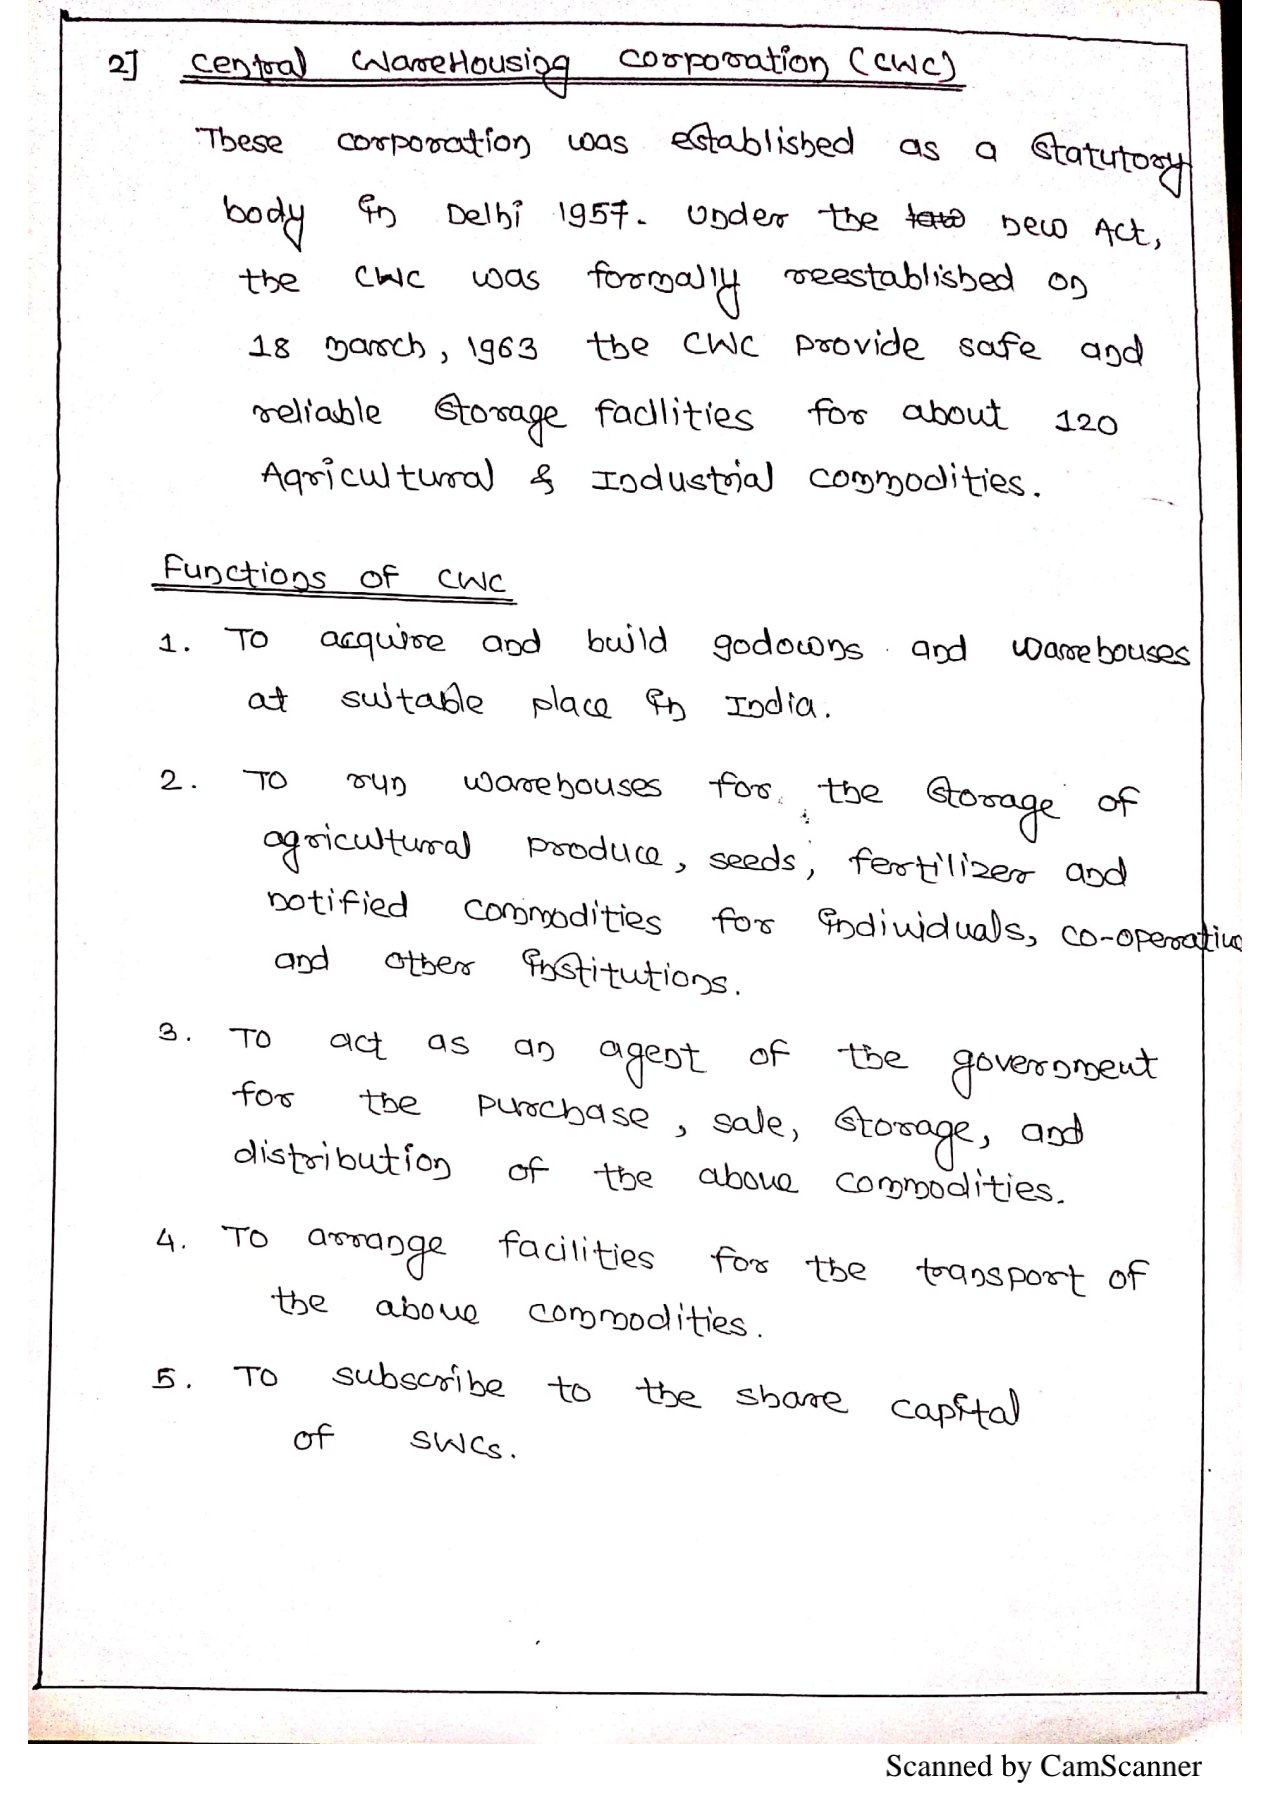 2] Central WareHousing Corporation (CWC)
These corporation was established as a statutory
body in Delhi 1957. Under the new Act,
the CWC was formally reestablished on
18 march, 1963 the CWC provide safe and
reliable storage facilities for about 120
Agricultural & Industrial commodities.
Functions of CWC
1. To acquire and build godowns and warehouses
at suitable place in India.
2. To run warehouses for the storage of
agricultural produce, seeds, fertilizer and
notified commodities for individuals, co-operative
and other institutions.
3. To act as an agent of the government
for the purchase, sale, storage, and
distribution of the above commodities.
4. To arrange facilities for the transport of
the above commodities.
5. To subscribe to the share capital
of SWCs.
Scanned by CamScanner